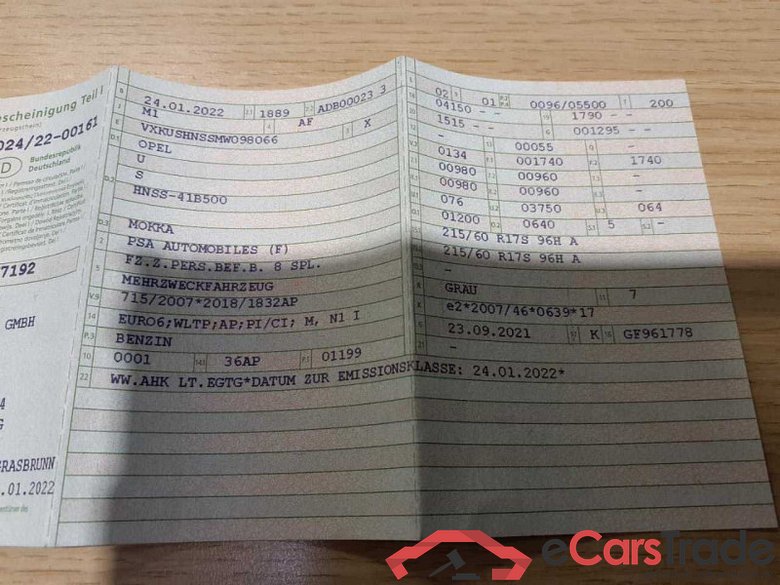 scheinigung Teil I
024/22-00161
D Bundesrepublik
Deutschland
7192
GMBH
4
G
GRASBRUNN
.01.2022
B 24.01.2022 2.1 1889 2.2 ADB00023 3
J M1 4 AF
E VXKUSHNSSMW098066 3 X
D.1 OPEL
U
D.2 S
HNSS-41B500
D.3 MOKKA
2 PSA AUTOMOBILES (F)
5 FZ.Z.PERS.BEF.B. 8 SPL.
MEHRZWECKFAHRZEUG
V.9 715/2007*2018/1832AP
14 EURO6;WLTP;AP;PI/CI; M, N1 I
P.3 BENZIN
10 0001 14.1 36AP P.1 01199
22 WW.AHK LT.EGTG*DATUM ZUR EMISSIONSKLASSE: 24.01.2022*
L 02 9 01 P.2 P.4 0096/05500 T 200
18 04150 - - 19 1790 - -
20 1515 - - G 001295 - -
12 - 13 00055 Q -
0134 7.1 001740 F.2 1740
00980 7.2 00960 -
00980 00960 -
076 03750 064
01200 0.2 0640 S.1 5 S.2 -
215/60 R17S 96H A
215/60 R17S 96H A
-
R GRAU 11 7
K e2*2007/46*0639*17
6 23.09.2021 17 K 16 GF961778
21 -
eCarsTrade